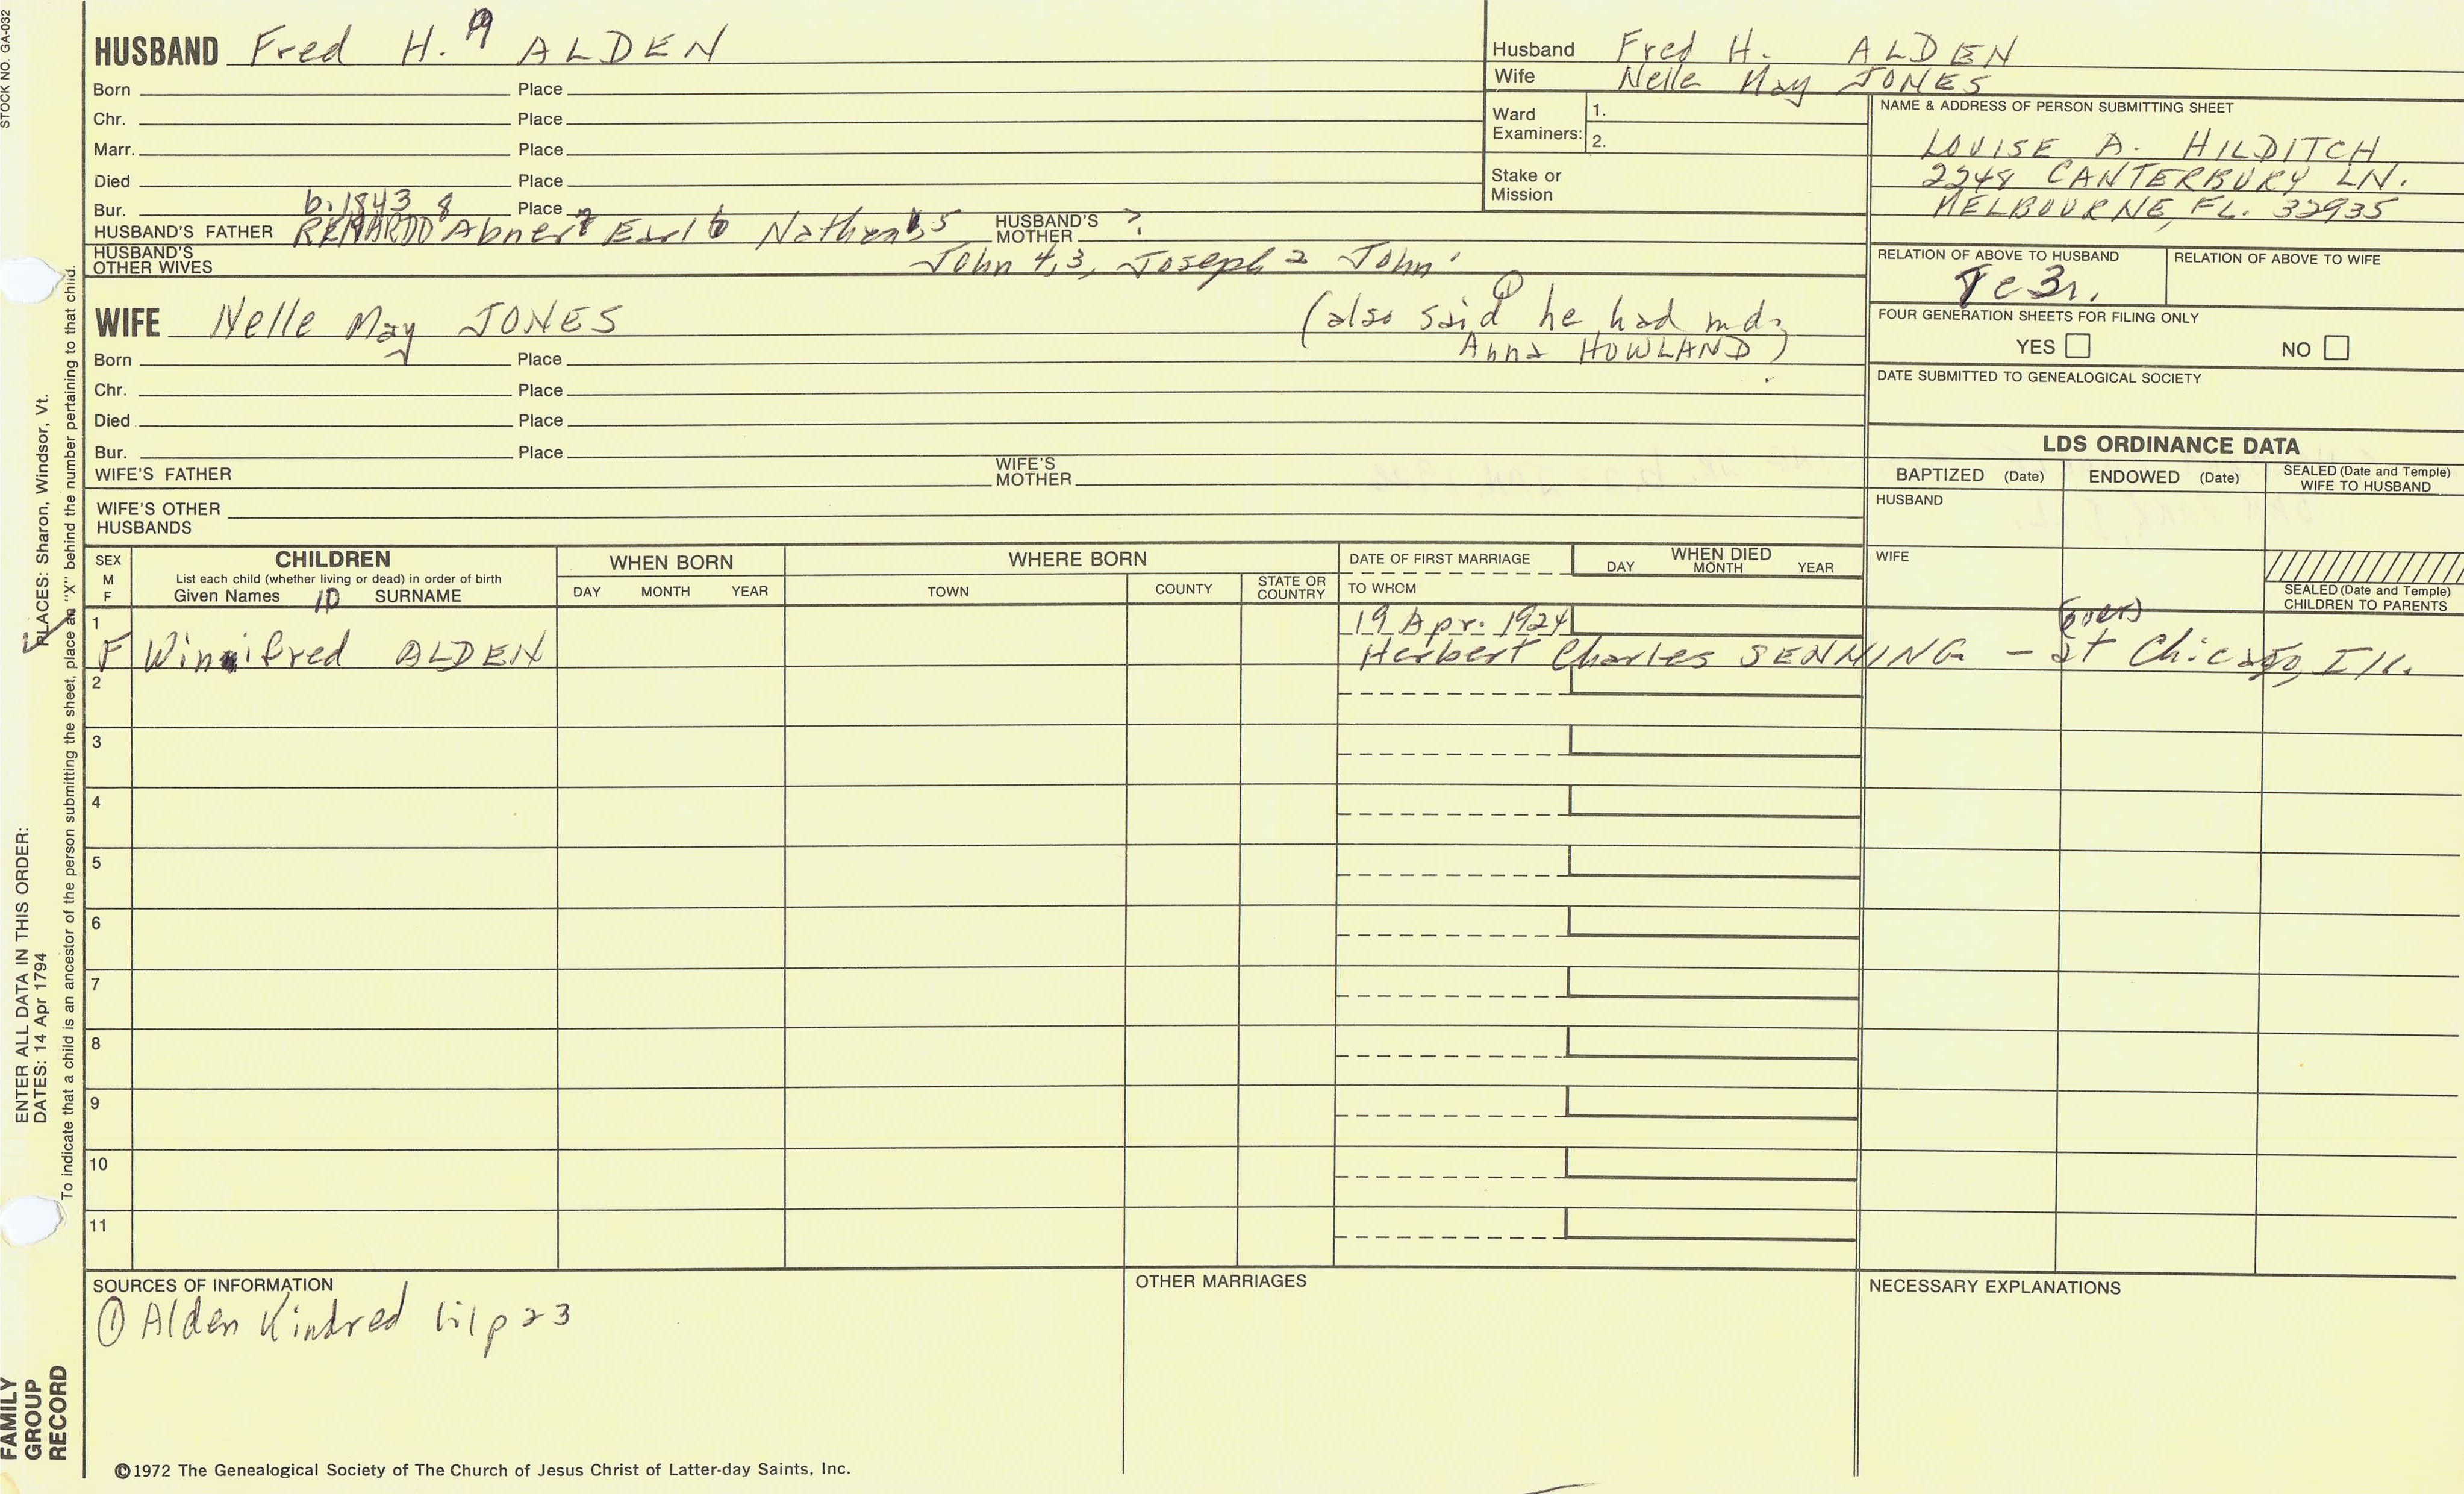 STOCK NO. GA-032
HUSBAND Fred H. 9 ALDEN
Born Place
Chr. Place
Marr. Place
Died Place
b. 1843 8
Bur. Place
HUSBAND'S FATHER Abner 7 Earl 6 Nathan 5 HUSBAND'S MOTHER ?
HUSBAND'S OTHER WIVES John 4,3, Joseph 2 John 1
WIFE Nelle May JONES (also said he had md.
Anna HOWLAND)
Born Place
Chr. Place
Died Place
Bur. Place
WIFE'S FATHER WIFE'S MOTHER
WIFE'S OTHER HUSBANDS
Husband Fred H. ALDEN
Wife Nelle May JONES
Ward Examiners: 1.
2.
Stake or Mission
NAME & ADDRESS OF PERSON SUBMITTING SHEET
LOUISE A. HILDITCH
2248 CANTERBURY LN.
MELBOURNE, FL. 32935
RELATION OF ABOVE TO HUSBAND RELATION OF ABOVE TO WIFE
FOUR GENERATION SHEETS FOR FILING ONLY
YES NO
DATE SUBMITTED TO GENEALOGICAL SOCIETY
LDS ORDINANCE DATA
BAPTIZED (Date) ENDOWED (Date) SEALED (Date and Temple) WIFE TO HUSBAND
HUSBAND
WIFE
SEALED (Date and Temple) CHILDREN TO PARENTS
SEX M F
CHILDREN
List each child (whether living or dead) in order of birth
Given Names 10 SURNAME
WHEN BORN
DAY MONTH YEAR
WHERE BORN
TOWN COUNTY STATE OR COUNTRY
DATE OF FIRST MARRIAGE
TO WHOM
WHEN DIED
DAY MONTH YEAR
1 19 Apr. 1924 (over)
F Winnifred ALDEN Herbert Charles SENNING - at Chicago, Ill.
2
3
4
5
6
7
8
9
10
11
SOURCES OF INFORMATION
① Alden Kindred p 23
OTHER MARRIAGES
NECESSARY EXPLANATIONS
©1972 The Genealogical Society of The Church of Jesus Christ of Latter-day Saints, Inc.
FAMILY
GROUP
RECORD
ENTER ALL DATA IN THIS ORDER:
DATES: 14 Apr 1794
PLACES: Sharon, Windsor, Vt.
To indicate that a child is an ancestor of the person submitting the sheet, place an "X" behind the number pertaining to that child.